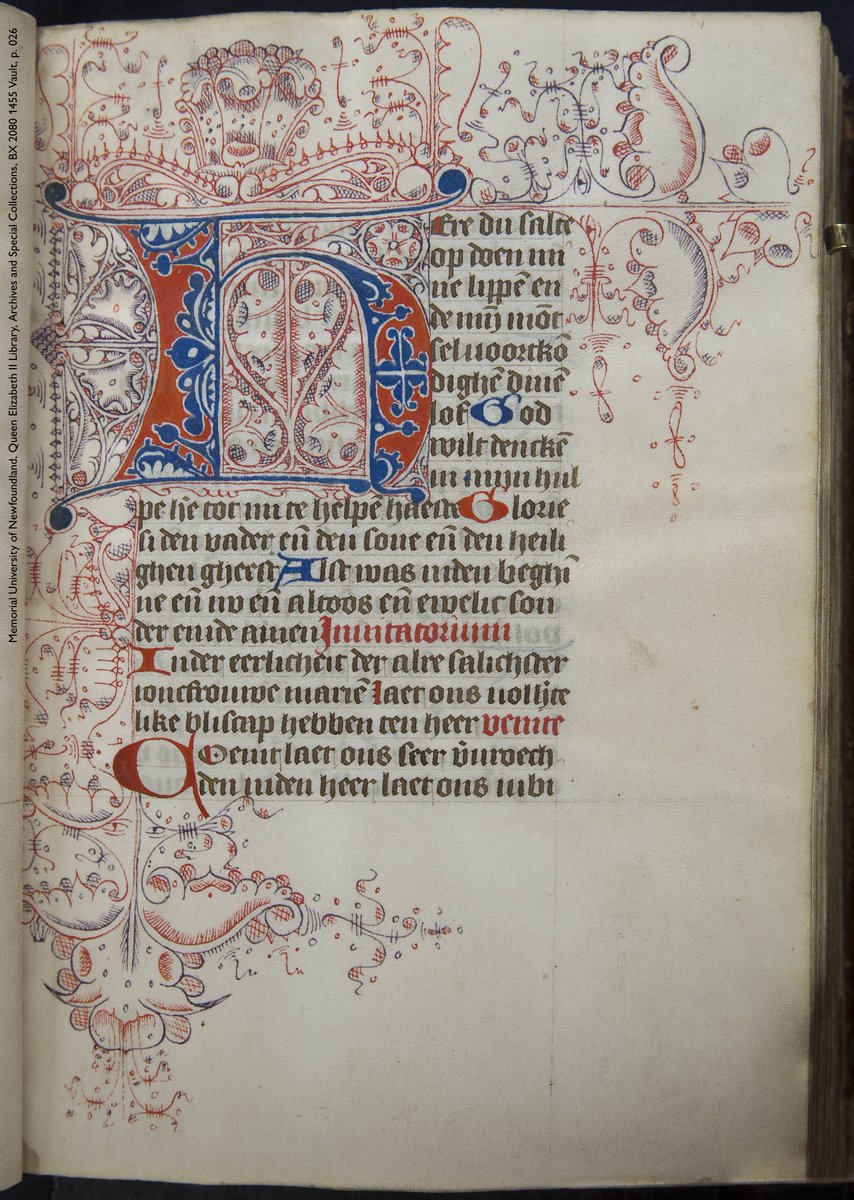 Memorial University of Newfoundland, Queen Elizabeth II Library, Archives and Special Collections. BX 2080 1455 Vault, p. 026
Here du salte
op doen mi
ne lippē en
de mijn mōt
sel voortkō
dighē dinē
lof God
wilt denckē
in mijn hul
pe h̄e tot mi te helpē haeste Glorie
si den vader eñ den sone eñ den heili
ghen gheest Alst was inden beghī
ne eñ nv eñ altoos eñ ewelic son
der einde amen Inuitatorium
Inder eerlicheit der alre salichster
ioncfrouwe mariē laet ons uollijc
like bliscap hebben ten heer venite
Coemt laet ons seer v̄uroech
den inden heer laet ons iubi